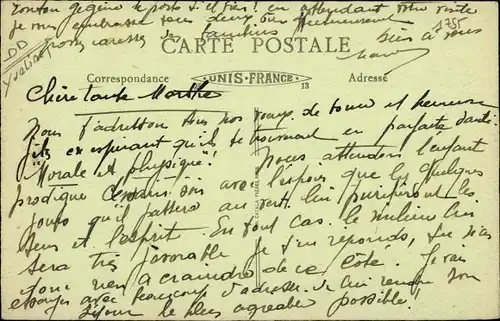 je vous embrasse tous deux bien affectueusement
bien à vous
1755
DD
CARTE POSTALE
Correspondance
UNIS-FRANCE
13
Adresse
Chère tante Marthe
Nous t'adressons tous nos voeux de bonne et heureuse
en espérant qu'ils te trouveront en parfaite santé
Morale et physique! Nous attendons l'enfant
prodigue demain soir avec l'espoir que les quelques
jours qu'il passera au vert lui purifieront les
sens et l'esprit. En tout cas le milieu lui
sera très favorable je t'en réponds, tu n'as
donc rien à craindre de ce côté. Je vais
essayer avec beaucoup d'adresse de lui rendre son
séjour le plus agréable possible!